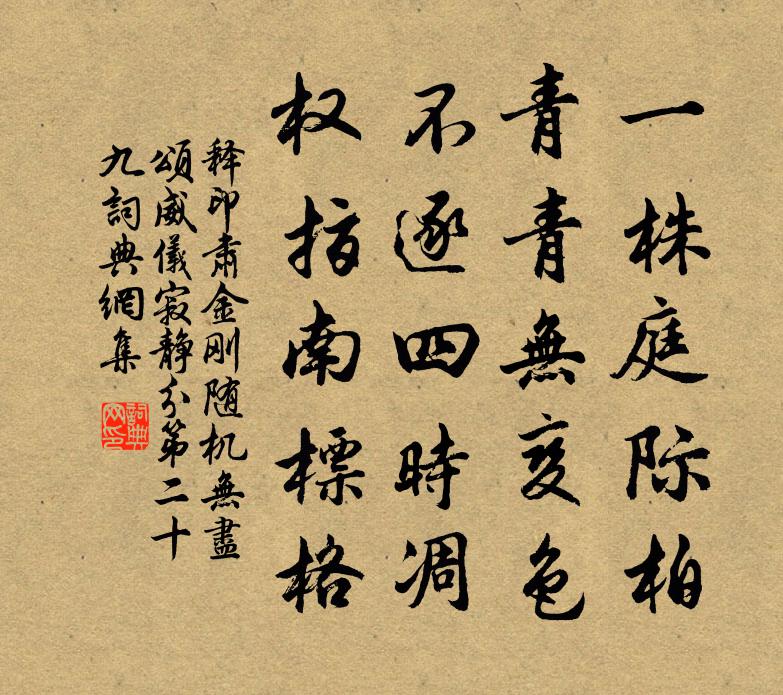 一株庭际柏
青青無变色
不逐四時凋
权指南標格
释印肃金刚随机無盡
頌威儀寂静分第二十
九詞典網集
詞典
网印